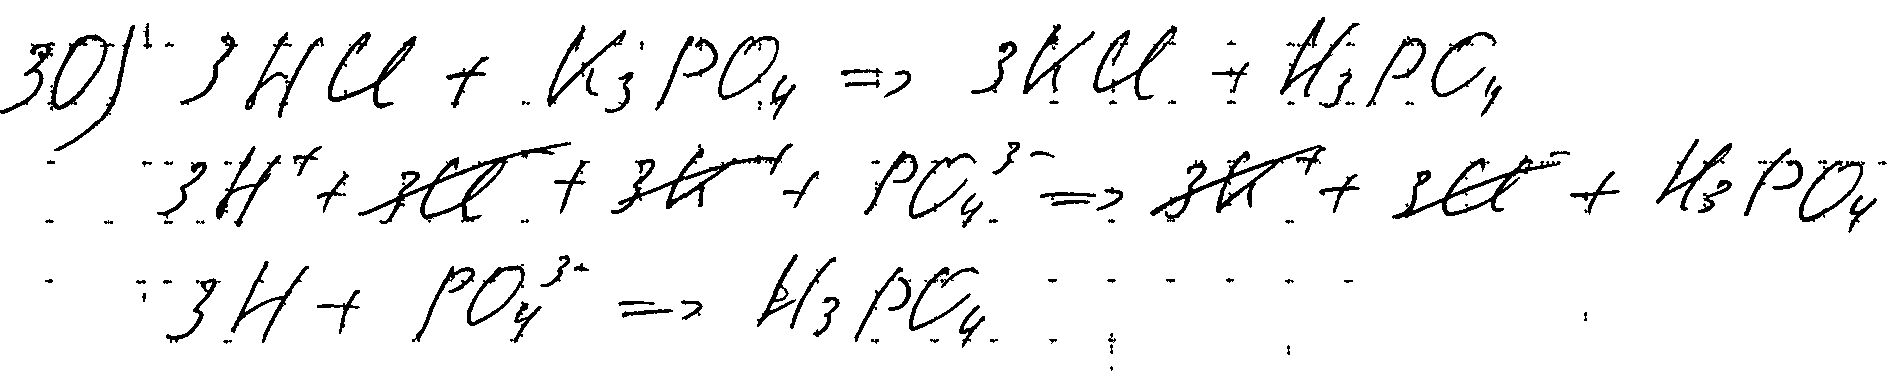 30) 3HCl + K₃PO₄ => 3KCl + H₃PO₄
3H⁺ + 3Cl⁻ + 3K⁺ + PO₄³⁻ => 3K⁺ + 3Cl⁻ + H₃PO₄
3H + PO₄³⁻ => H₃PO₄